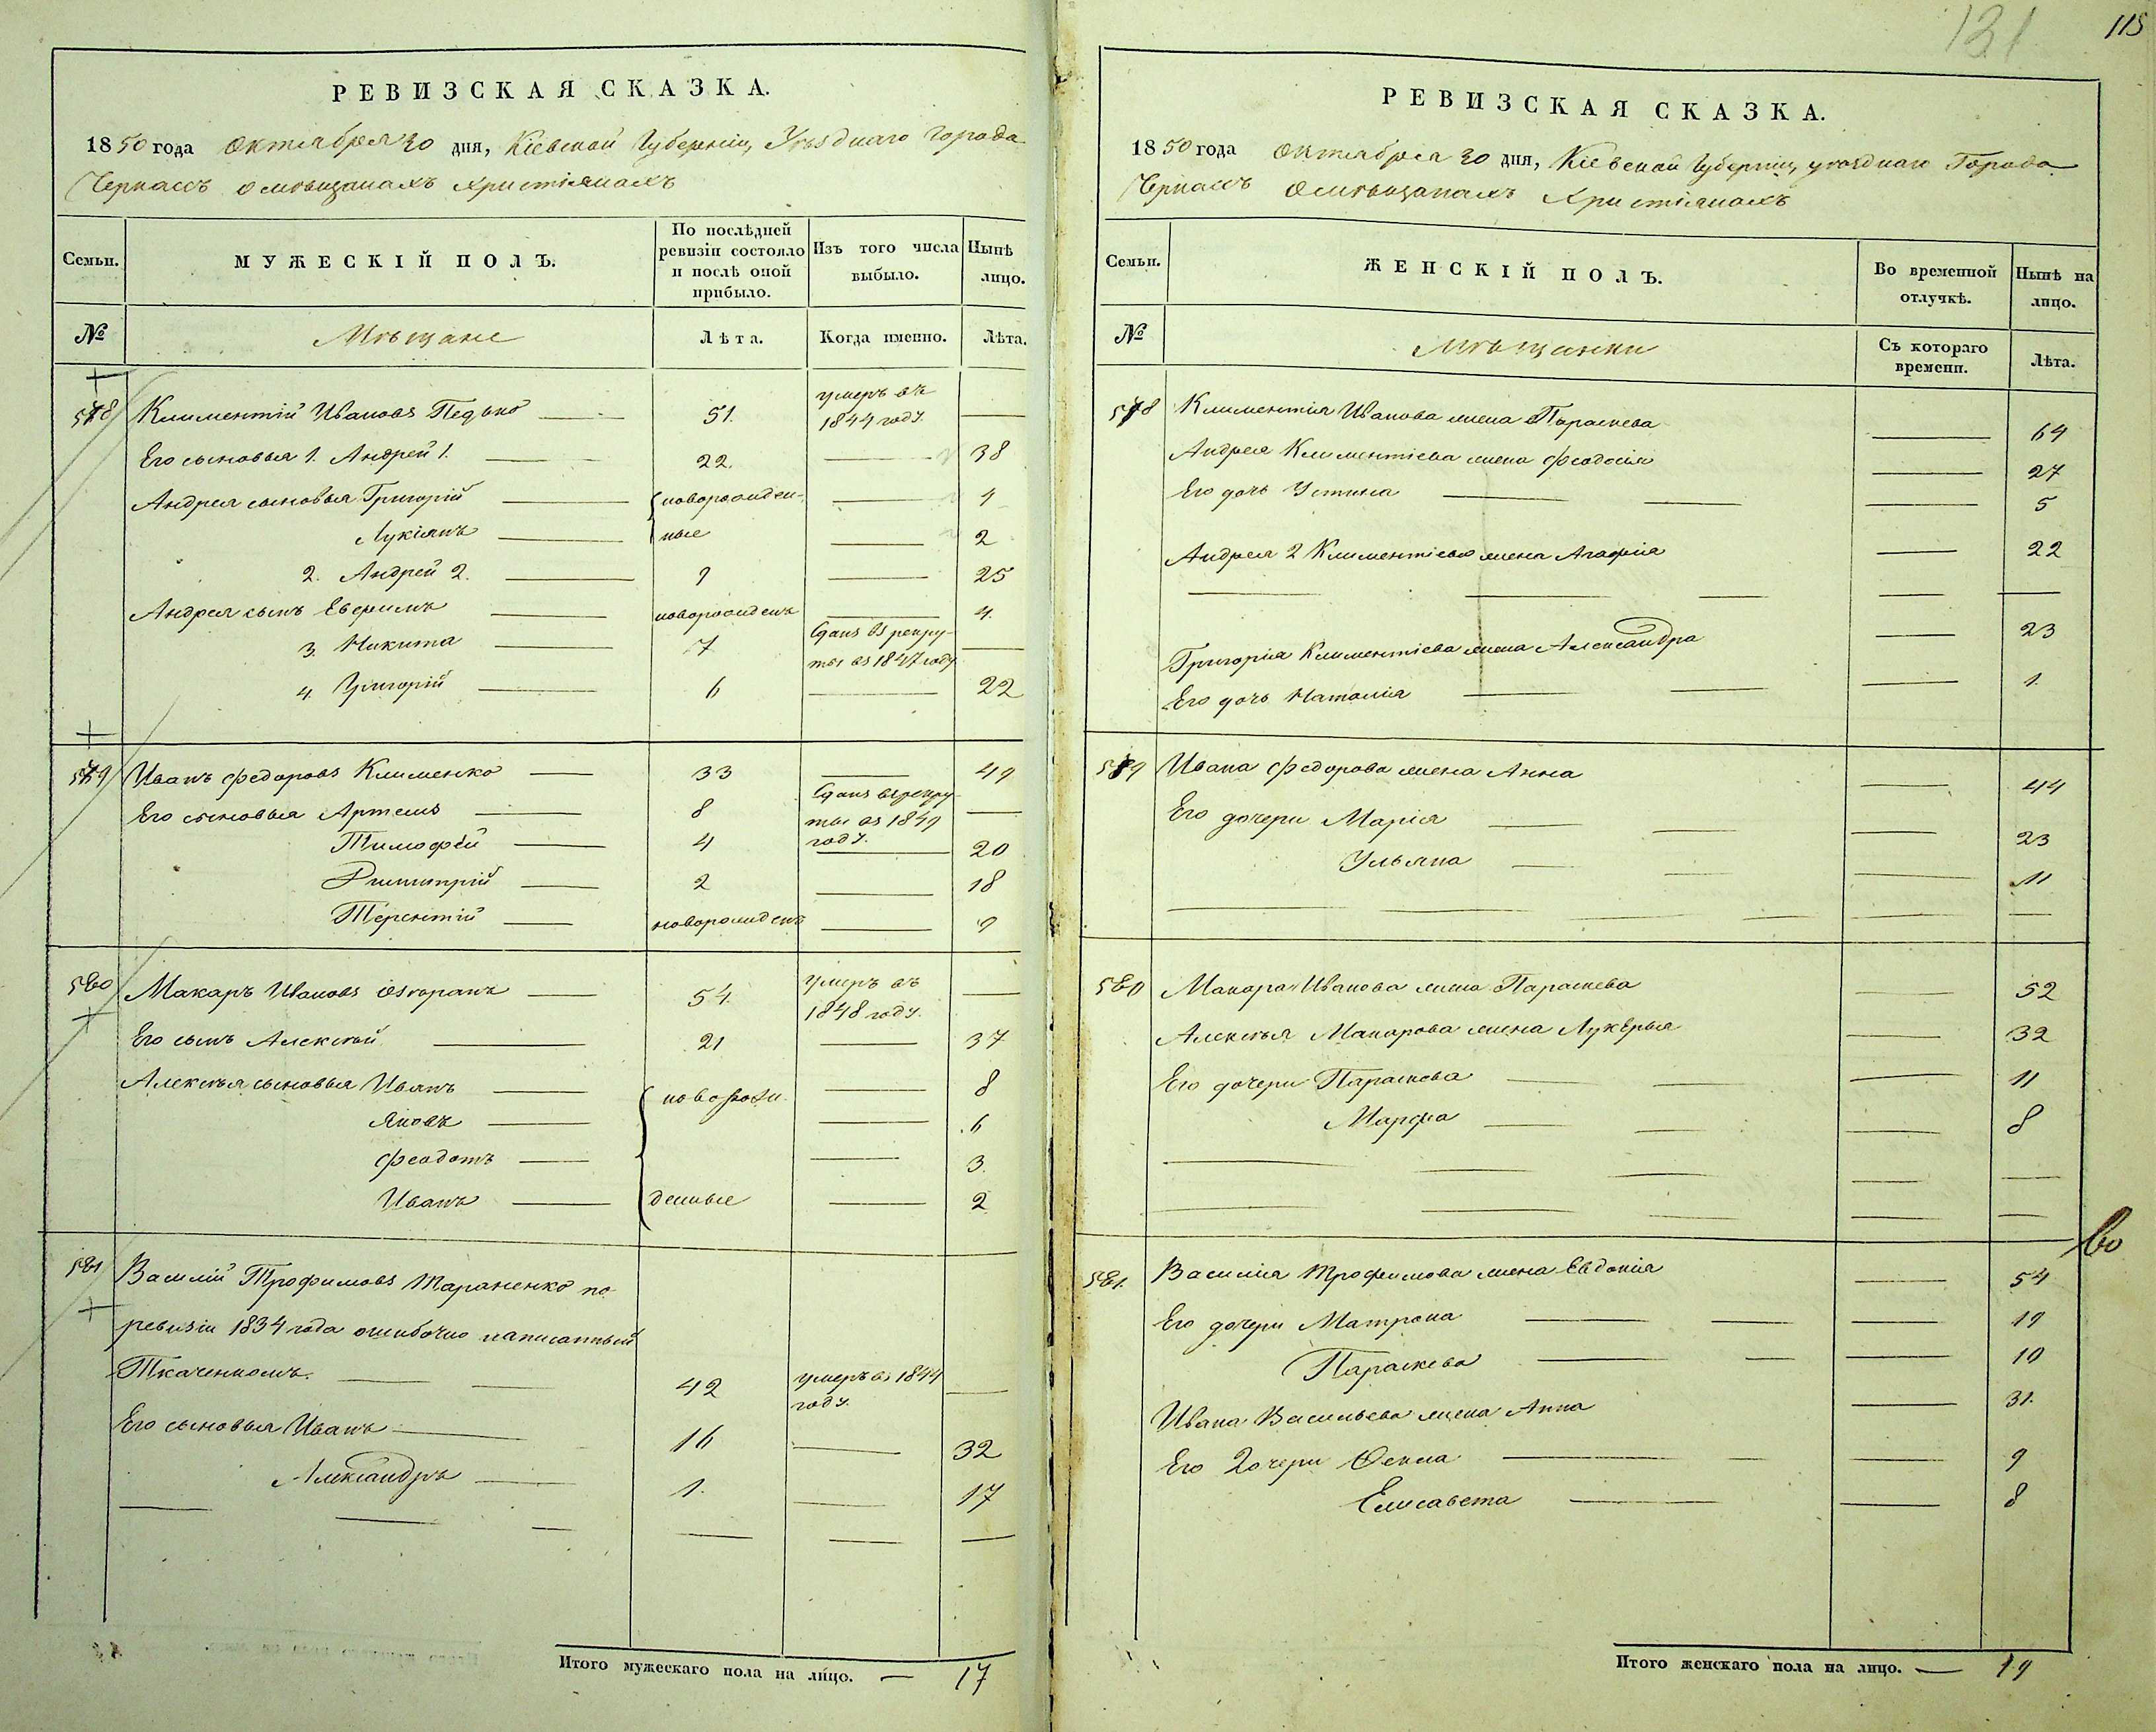 115
131
РЕВИЗСКАЯ СКАЗКА.
1850 года Октября 30 дня, Кіевской Губерніи, Уѣзднаго Города
Черкассъ о мѣщанахъ христіянахъ
Семьи.
МУЖЕСКІЙ ПОЛЪ.
По послѣдней ревизіи состояло и послѣ оной прибыло.
Изъ того числа выбыло.
Нынѣ лицо.
№
Мѣщане
Лѣта.
Когда именно.
Лѣта.
578 Климентій Ивановъ Педько 51. умеръ въ 1844 году.
Его сыновья 1. Андрей 1. 22. 38
Андрея сыновья Григорій новорожден- 4
Лукіянъ ные 2
2. Андрей 2. 9 25
Андрея сынъ Евфимъ новорожденъ 4.
3. Никита 7 Сданъ въ рекруты въ 1847 году
4. Григорій 6 22
579 Иванъ Федоровъ Клименко 33 49
Его сыновья Артемъ 8 Сданъ въ рекруты въ 1849 году.
Тимофѣй 4 20
Димитрій 2 18
Терентій новорожденъ 9
580 Макаръ Ивановъ 54. умеръ въ 1848 году.
Его сынъ Алексѣй 21 37
Алексѣя сыновья Иванъ новорож- 8
Яковъ 6
Феодотъ 3.
Иванъ денные 2
581 Василій Трофимовъ Тараненко по
ревизіи 1834 года ошибочно написанный
Ткаченкомъ. 42 умеръ въ 1844 году.
Его сыновья Иванъ 16 32
Александръ 1. 17
Итого мужескаго пола на лицо. — 17
РЕВИЗСКАЯ СКАЗКА.
1850 года Октября 30 дня, Кіевской Губерніи, уѣзднаго Города
Черкассъ о мѣщанахъ Христіянахъ
Семьи.
ЖЕНСКІЙ ПОЛЪ.
Во временной отлучкѣ.
Нынѣ на лицо.
№
Мѣщанки
Съ котораго времени.
Лѣта.
578 Климентія Иванова жена Параскева 64
Андрея Климентіева жена Феодосія 27
Его дочь Устина 5
Андрея 2 Климентіева жена Агафія 22
Григорія Климентіева жена Александра 23
Его дочь Наталія 1.
579 Ивана Федорова жена Анна 44
Его дочери Марія 23
Ульяна 11
580 Макара Иванова жена Параскева 52
Алексѣя Макарова жена Лукерья 32
Его дочери Параскева 11
Марфа 8
581. Василія Трофимова жена Евдокія 54
Его дочери Матрона 19
Параскева 10
Ивана Васильева жена Анна 31.
Его дочери 9
Елисавета 8
Итого женскаго пола на лицо. — 19